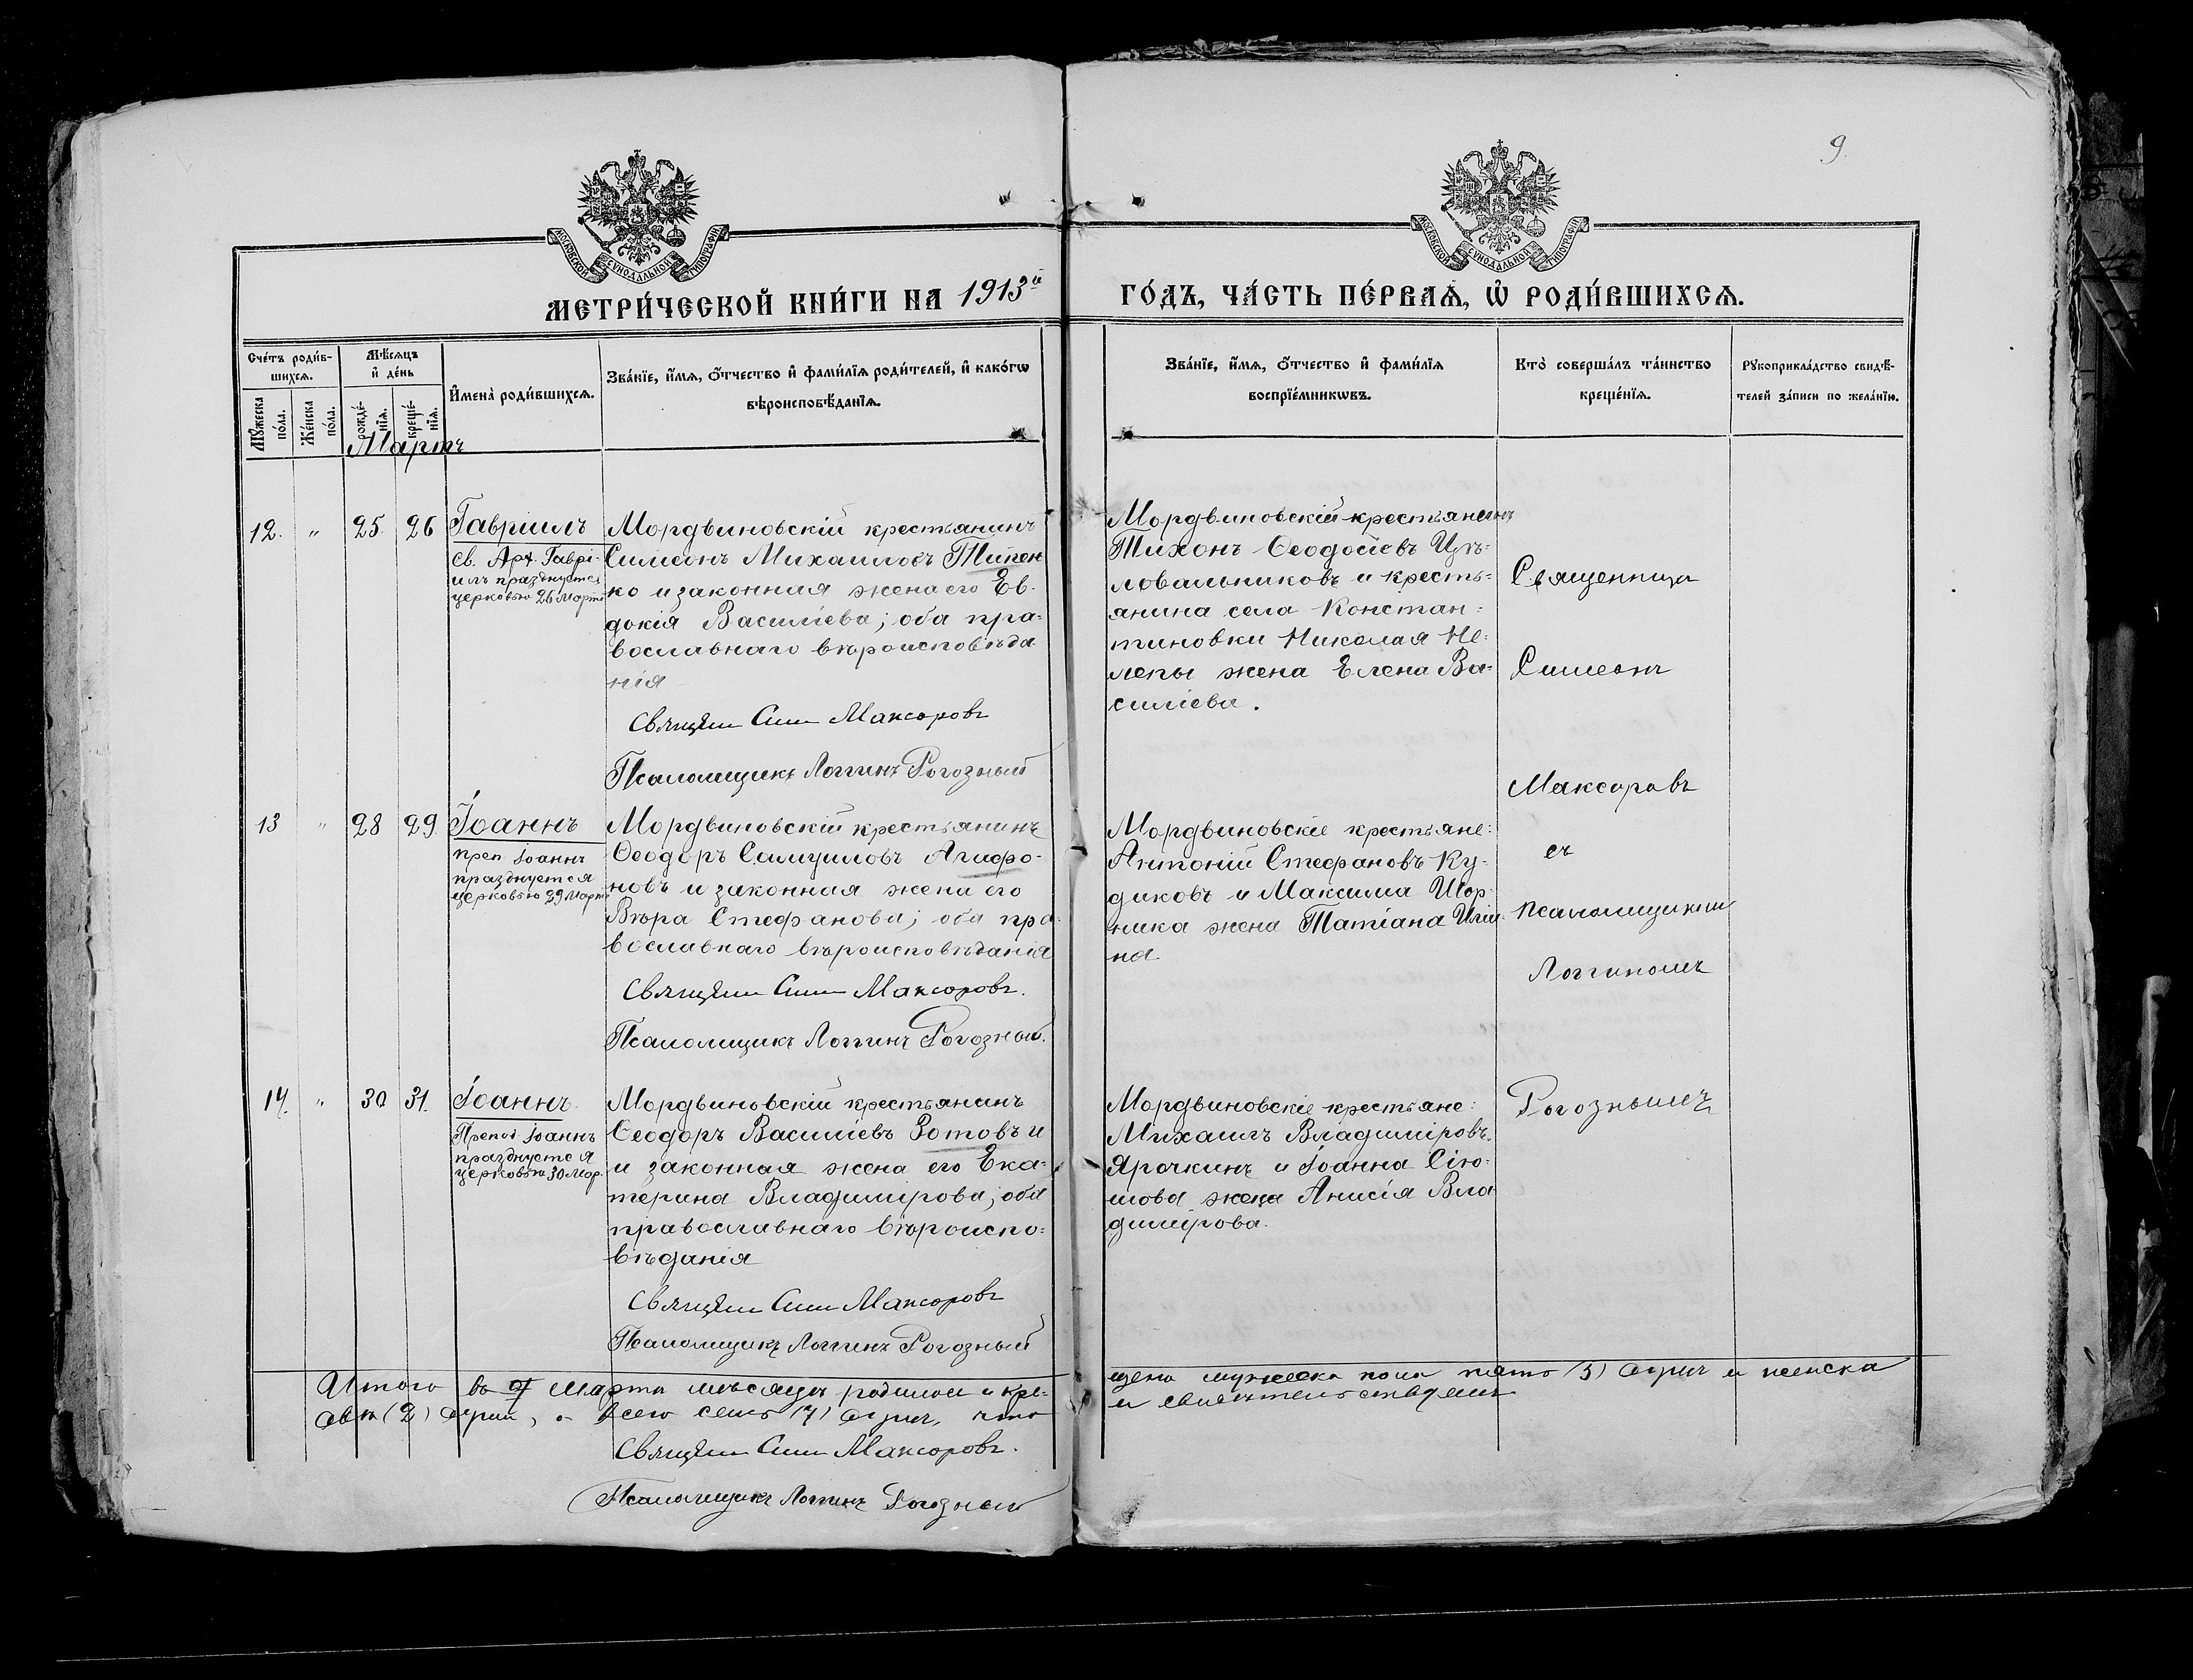 9.
МОСКОВСКОЙ СѴНОДАЛЬНОЙ ТИПОГРАФІИ
МОСКОВСКОЙ СѴНОДАЛЬНОЙ ТИПОГРАФІИ
МЕТРИ́ЧЕСКОЙ КНИ́ГИ НА 1913й
ГО́ДЪ, ЧА́СТЬ ПЕ́РВАѦ, Ѡ҆ РОДИ́ВШИХСѦ.
Сче́тъ роди́в-
шихсѧ.
Мѣ́сѧцъ
и҆ де́нь
Мꙋ́жеска
по́ла.
Же́нска
по́ла.
рожде́-
нїѧ.
креще́-
нїѧ.
И҆мена̀ роди́вшихсѧ.
Зва́нїе, и҆́мѧ, ѻ҆́тчество и҆ фами́лїѧ роди́телей, и҆ како́гѡ
вѣроисповѣ́данїѧ.
Зва́нїе, и҆́мѧ, ѻ҆́тчество и҆ фами́лїѧ
воспрїе́мникѡвъ.
Кто̀ соверша́лъ та́инство
креще́нїѧ.
Рꙋкоприкла́дство свидѣ́-
телей за́писи по жела́нїю.
Мартъ
12. " 25. 26 Гавріилъ
св. Арх. Гаврі-
илъ празднуется
церковью 26 Марта
Мордвиновскій крестьянинъ
Симеонъ Михаиловъ Типен
ко и законная жена его Ев-
докія Василіева; оба пра-
вославнаго вѣроисповѣда
нія
Священ Сим Максоровъ
Псаломщикъ Логгинъ Рогозный
Мордвиновскій крестьянинъ
Тихонъ Ѳеодосіевъ Цѣ-
ловальниковъ и кресть-
янина села Констан-
тиновки Николая Не-
лепы жена Елена Ва-
силіева.
Священникъ
Симеонъ
Максоровъ
13 " 28 29. Іоаннъ
преп Іоаннъ
празднуется
церковью 29 Март
Мордвиновскій крестьянинъ
Ѳеодоръ Самуиловъ Агафо-
новъ и законная жена его
Вѣра Стефанова; оба пра-
вославнаго вѣроисповѣданія
Священ Сим Максоровъ.
Псаломщикъ Логгинъ Рогозный.
Мордвиновскіе крестьяне:
Антоній Стефановъ Ку-
диковъ и Максима Шор-
ника жена Татіана
на
съ
псаломщикомъ
Логгиномъ
14. " 30 31. Іоаннъ
Препод Іоаннъ
празднуется
церковью 30 Мар
Мордвиновскій крестьянинъ
Ѳеодоръ Василіевъ Зотовъ и
и законная жена его Ека-
терина Владимірова; оба
православнаго вѣроиспо-
вѣданія
Священ Сим Максоровъ
Псаломщикъ Логгинъ Рогозный
Мордвиновскіе крестьяне:
Михаилъ Владиміровъ
Ярочкинъ и Іоанна Сію-
шова жена Анисія Вла
димірова.
Рогознымъ
Итого въ Марта мѣсяцѣ родилось и кре-
щено мужеска пола пять (5) душъ и женска
двѣ (2) души, а всего семь (7) душъ, что
и свидѣтельствуемъ
Священ Сим Максоровъ.
Псаломщикъ Логгинъ Рогозный